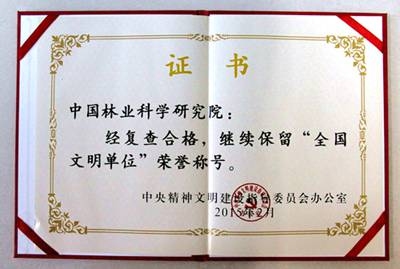 证书
中国林业科学研究院：
经复查合格，继续保留“全国
文明单位”荣誉称号。
中央精神文明建设指 委员会办公室
2015年2月